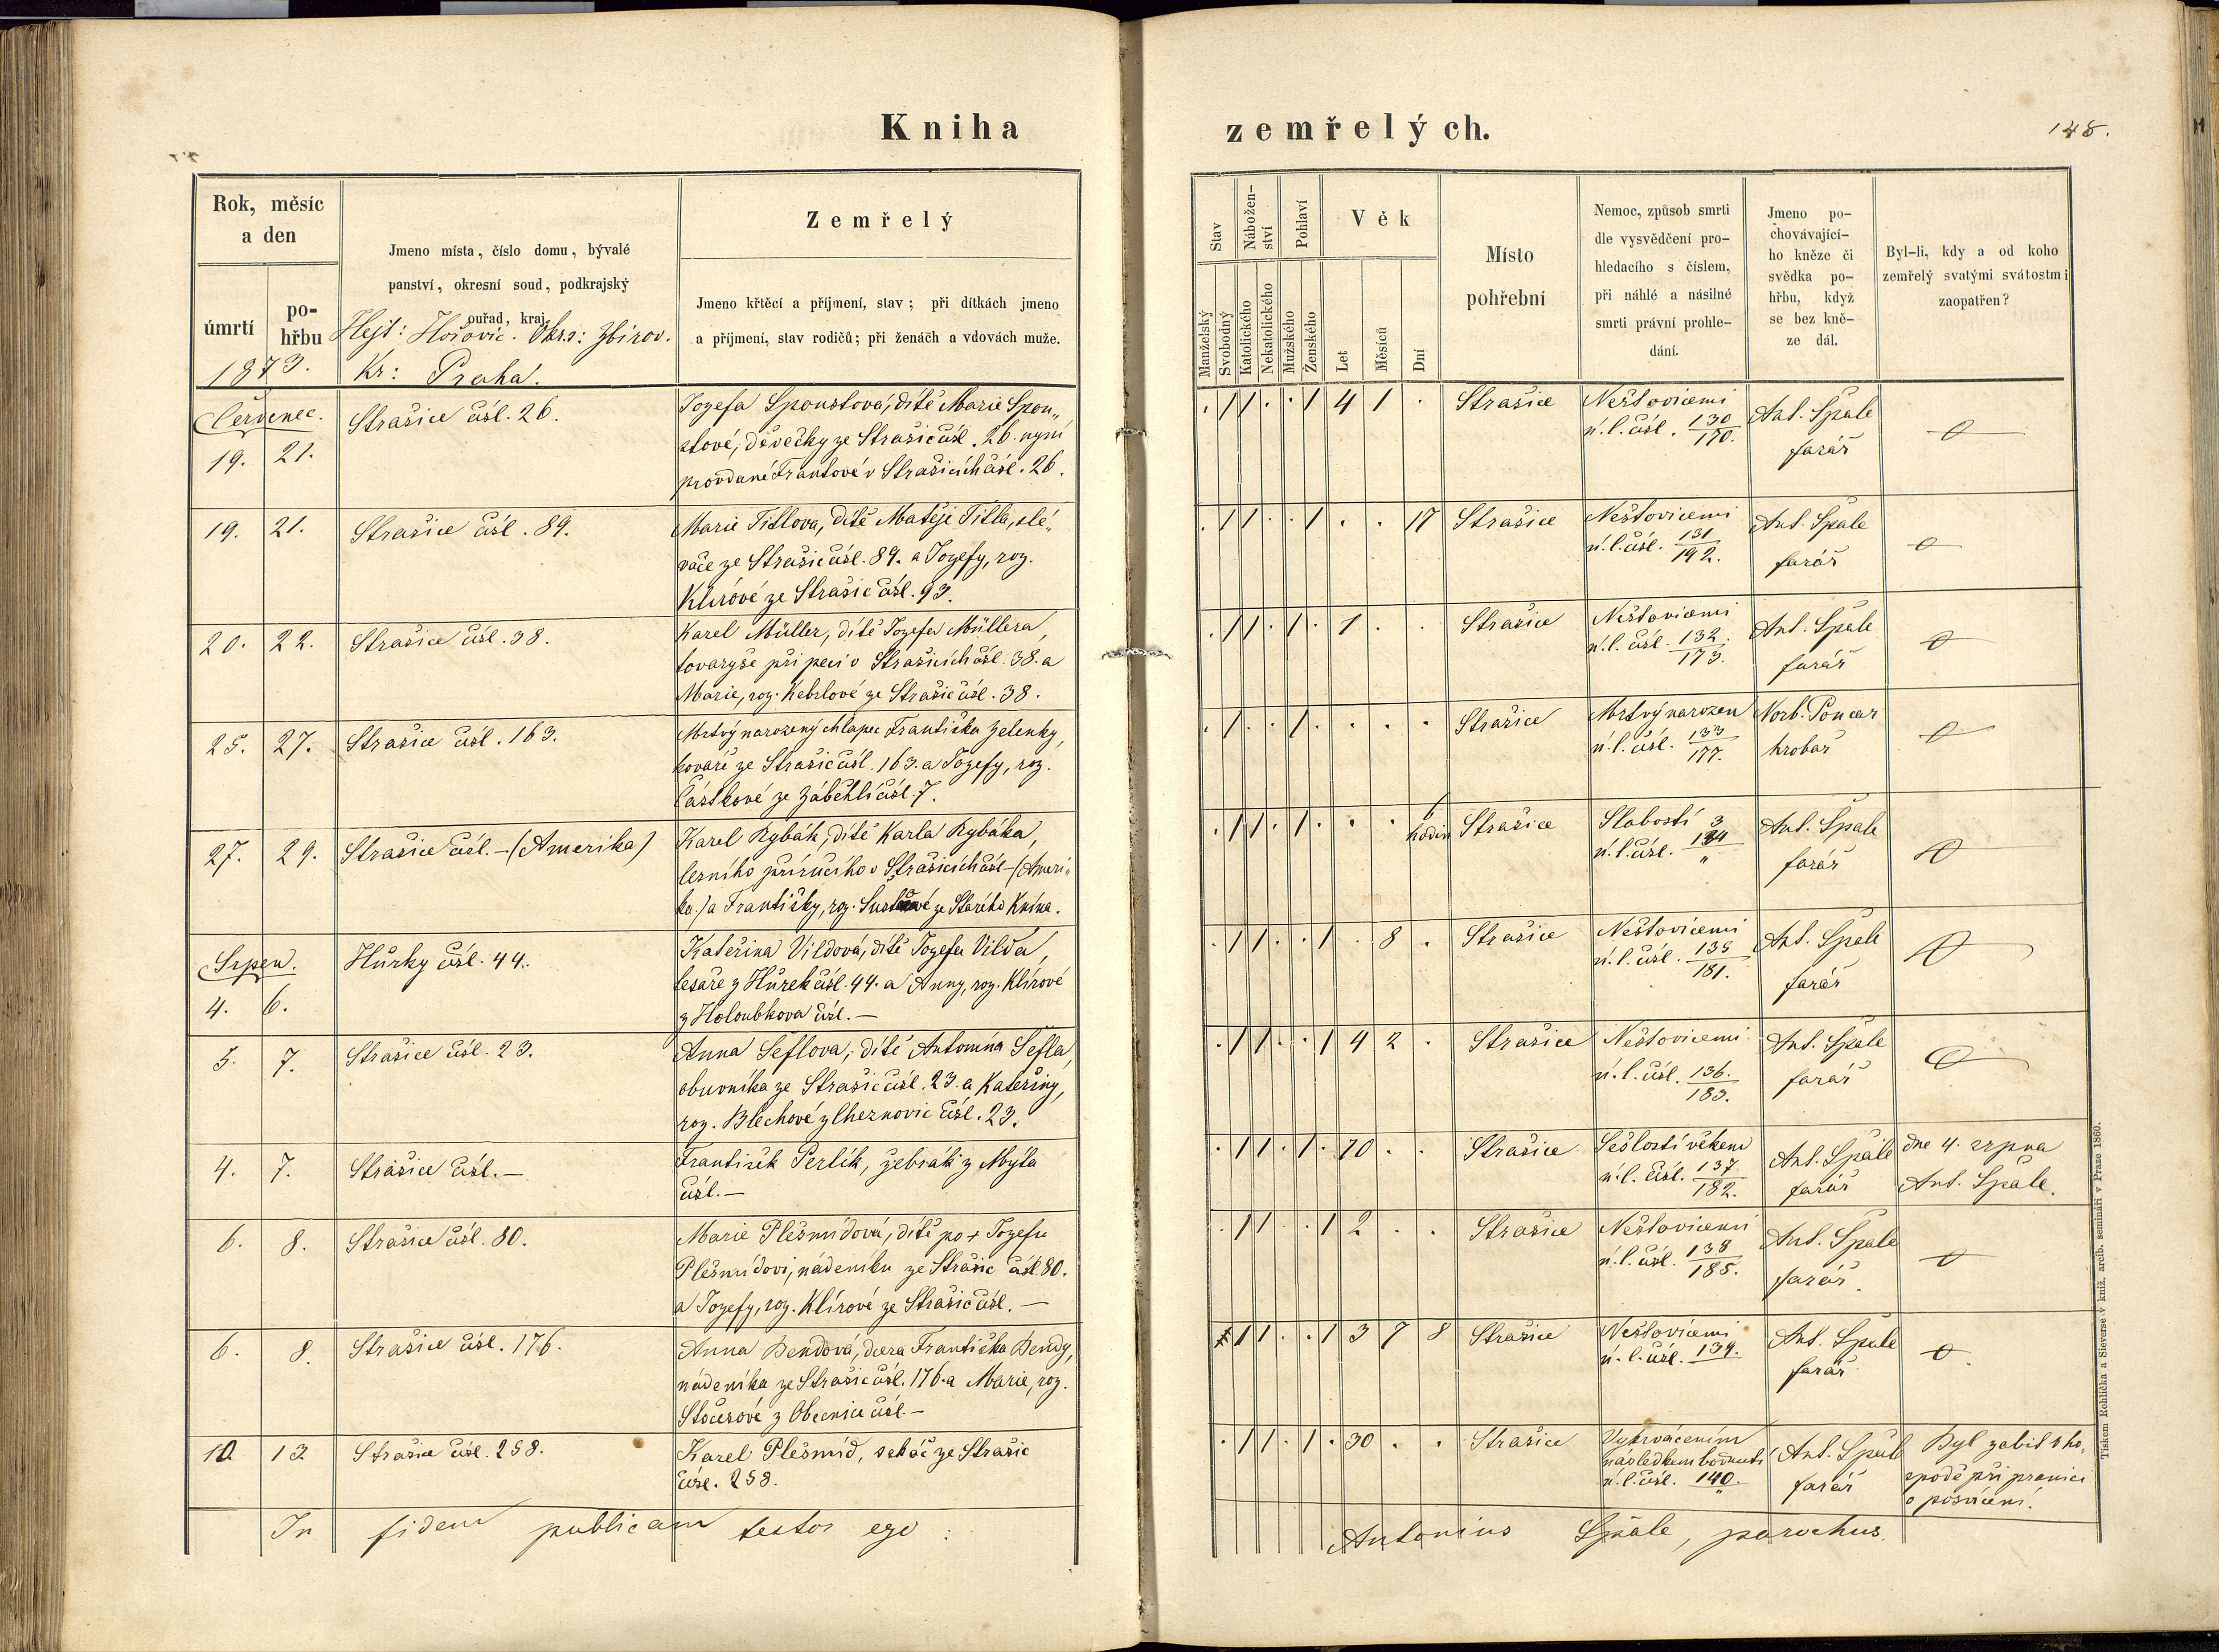 Kniha zemřelých.
148.
Rok, měsíc a den
úmrtí
pohřbu
Jmeno místa, číslo domu, bývalé
panství, okresní soud, podkrajský
ouřad, kraj.
Hejt: Hořovic. Okrs: Zbirov.
Kr: Praha.
1873.
Zemřelý
Jmeno křtěcí a příjmení, stav; při dítkách jmeno
a příjmení, stav rodičů; při ženách a vdovách muže.
Stav
Manželský
Svobodný
Náboženství
Katolického
Nekatolického
Pohlaví
Mužského
Ženského
Věk
Let
Měsíců
Dní
Místo
pohřební
Nemoc, způsob smrti
dle vysvědčení pro-
hledacího s číslem,
při náhlé a násilné
smrti právní prohle-
dání.
Jmeno po-
chovávající-
ho kněze či
svědka po-
hřbu, když
se bez kně-
ze dál.
Byl-li, kdy a od koho
zemřelý svatými svátostmi
zaopatřen?
Červenec.
19. 21. Strašice čísl. 26.
Jozefa Spoustová, dítě Marie Spou„
stové, děvečky ze Strašic čísl. 26. nyní
provdané Frantové v Strašicích čísl. 26.
. / / . . / 4 1 . Strašice
Neštovicemi
ú. l. čísl. 130/170.
Ant. Špale
farář
19. 21. Strašice čísl. 89.
Marie Titlova, dítě Matěje Titla, slé„
vače ze Strašic čísl. 89. a Jozefy, roz.
Klírové ze Strašic čísl. 93.
. / / . . / . . 17 Strašice
Neštovicemi
ú. l. čísl. 131/192.
Ant. Špale
farář
20. 22. Strašice čísl. 38.
Karel Müller, dítě Jozefa Müllera,
tovaryše při peci v Strašicích čísl. 38. a
Marie, roz. Kebrlové ze Strašic čísl. 38.
. / / . / . 1 . . Strašice
Neštovicemi
ú. l. čísl. 132./173.
Ant. Špale
farář
25. 27. Strašice čísl. 163.
Mrtvý narozený chlapec Františka Zelenky,
kováře ze Strašic čísl. 163. a Jozefy, roz.
Částkové ze Záběhlí čísl. 7.
. / . . / . . . . Strašice
Mrtvý narozen
ú. l. čísl. 133/177.
Norb. Poncar
hrobař
27. 29. Strašice čísl. – (Amerika)
Karel Rybák, dítě Karla Rybáka,
lesního příručího v Strašicích čísl – (Ameri„
ka.) a Františky, roz. ze Starého Knína.
. / / . / . . . 6 hodin Strašice
Slabostí
ú. l. čísl. 134/„
Ant. Špale
farář
Srpen.
4. 6. Hůrky čísl. 44.
Kateřina Vildová, dítě Jozefa Vilda,
tesaře z Hůrek čísl. 44. a Anny, roz. Klírové
z Holoubkova čísl. —
. / / . . / . 8 . Strašice
Neštovicemi
ú. l. čísl. 135/181.
Ant. Špale
farář
5. 7. Strašice čísl. 23.
Anna Šeflova, dítě Antonína Šefla,
obuvníka ze Strašic čísl. 23. a Kateřiny,
roz. Blechové z Cheznovic čísl. 23.
. / / . . / 4 2 . Strašice
Neštovicemi
ú. l. čísl. 136./183.
Ant. Špale
farář
4. 7. Strašice čísl. —
František Perlík, žebrák z Mýta
čísl. —
. / / . / . 70 . . Strašice
Sešlostí věkem
ú. l. čísl. 137./182.
Ant. Špale
farář
dne 4. srpna
Ant. Špale.
6. 8. Strašice čísl. 80.
Marie Plešmídová, dítě po + Jozefu
Plešmídovi, nádeníku ze Strašic čísl. 80.
a Jozefy, roz. Klírové ze Strašic čísl. —
. / / . . / 2 . . Strašice
Neštovicemi
ú. l. čísl. 138/185.
Ant. Špale
farář.
6. 8. Strašice čísl. 176.
Anna Bendová, dcera Františka Bendy,
nádeníka ze Strašic čísl. 176. a Marie, roz.
Štočesové z Obecnice čísl. —
/ / . . / 3 7 8 Strašice
Neštovicemi
ú. l. čísl. 139.
Ant. Špale
farář
10. 13. Strašice čísl. 258.
Karel Plešmíd, sekáč ze Strašic
čísl. 258.
. / / . / . 30 . . Strašice
Vykrvácením
následkem bodnutí
ú. l. čísl. 140./„
Ant. Špale
farář
Byl zabit v ho„
spodě při pranici
o posvícení.
In fidem publicam testor ego:
Antonius Špale, parochus.
Tiskem Rohlíčka a Sieverse v kníž. arcib. semináři v Praze 1860.